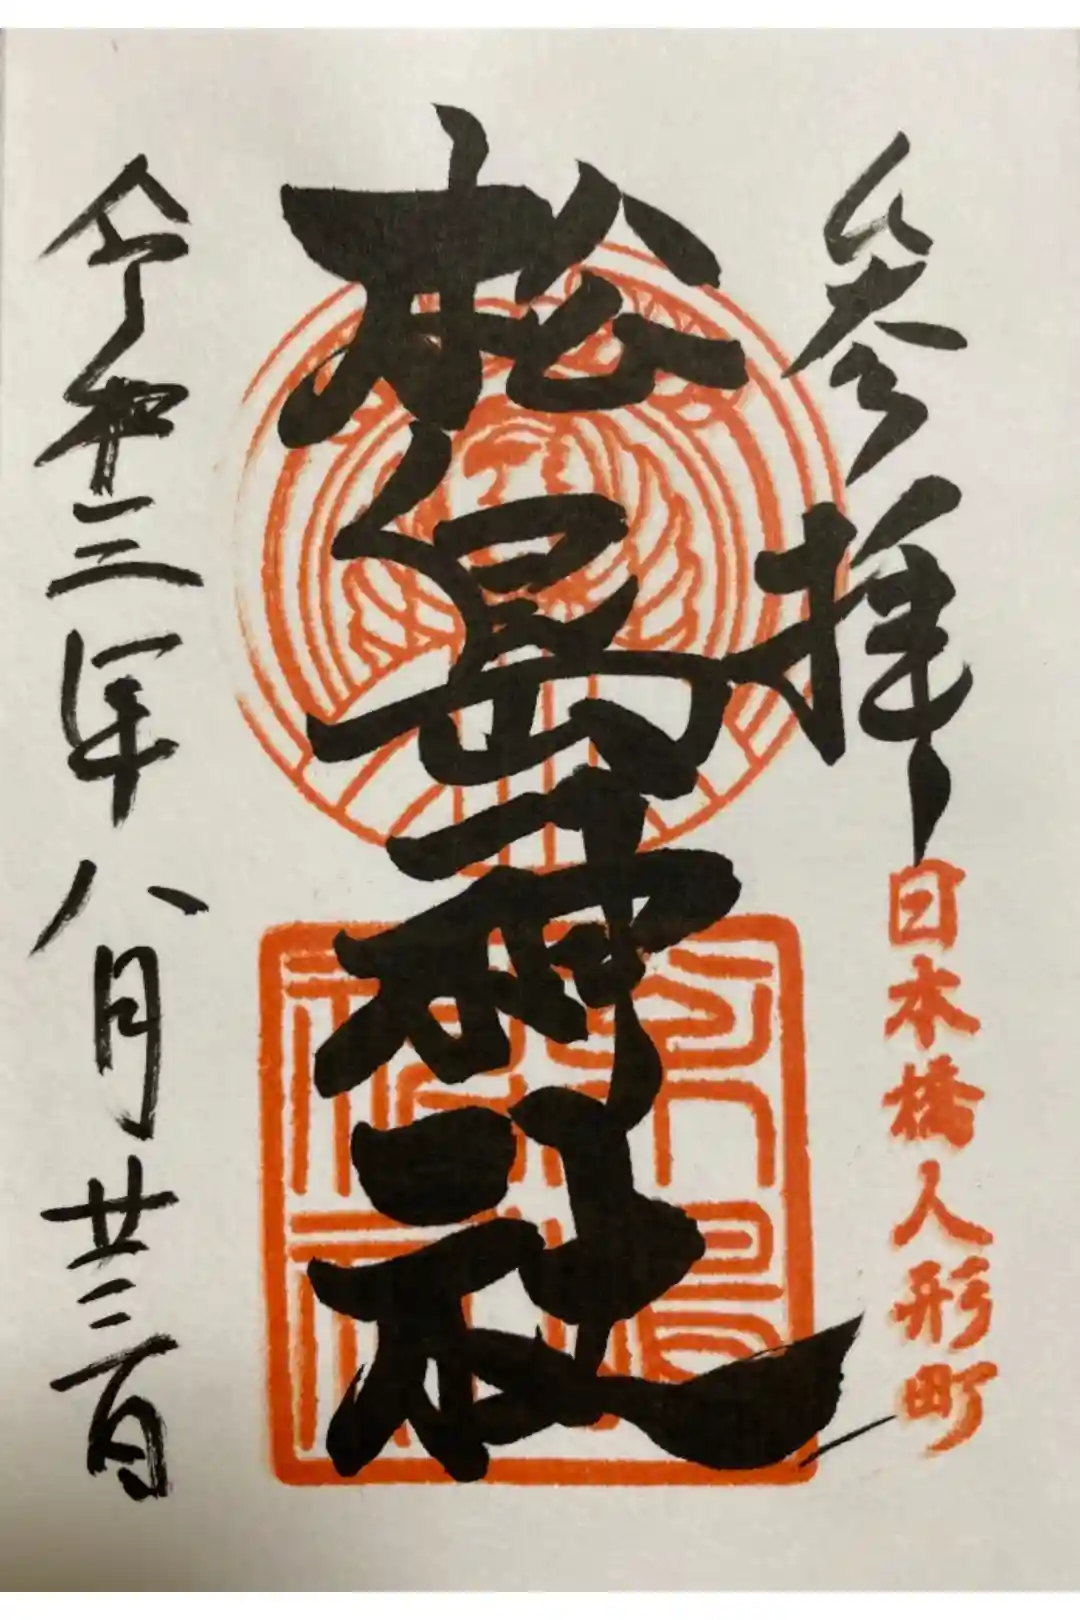 参拝
日本橋人形町
松島神社
令和三年八月廿三日